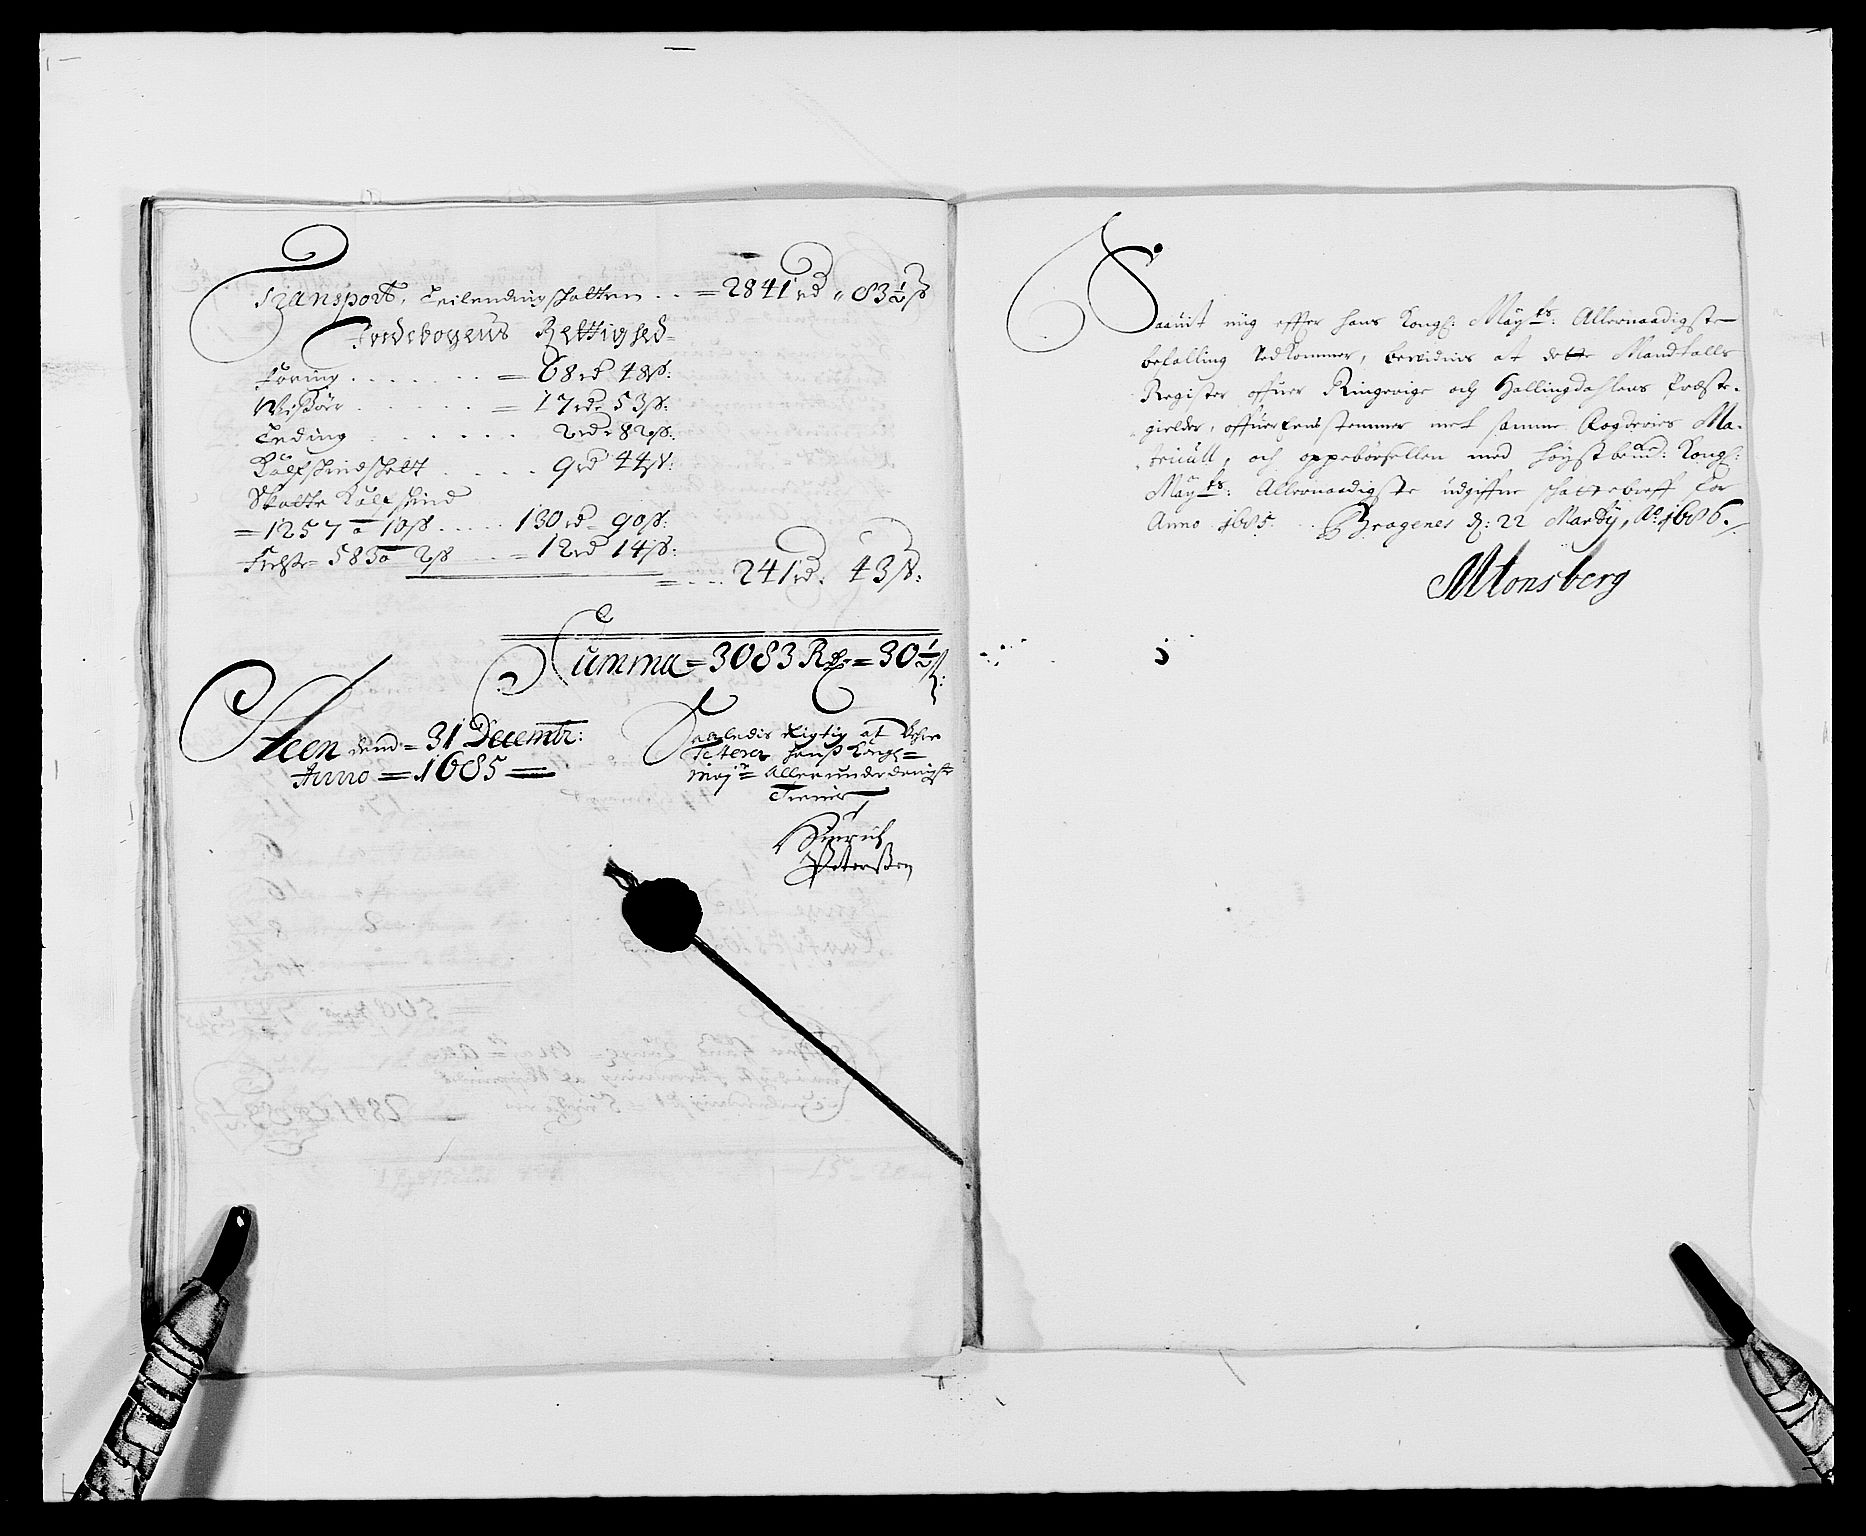 Transport, Leilendingschatten .. = 2841 rd " 83½ ß
Jordebogens Rettighed =
Föring . . . . . . = 68 rd 48 ß:
Wisöer . . . . . . = 17 rd = 53 ß:
Leding . . . . . . 2 rd = 82 ß:
Kalfskindschatt . . . . 9 rd 44 ß:
Skatte Kalfskind
= 1257 a 10 ß ..... 130 rd = 90 ß:
583 a 2 ß .... = 12 rd 14 ß:
= ... 241 rd. 43 ß:
Summa = 3083 Rd = 30½ ß:
Steen dend = 31 Decembr:
Anno = 1685 =
Saaledis Rigtig at Were
Testerer hans Kongl=
Maj = Allerunderdanigste
Tiener
Hinrich
Peterssen
Saauit mig effter hans Kongl: Maÿts: Allernaadigste
befalling vedkommer, beuidnes at dette Mandtalls
Register offuer Ringerige och Hallingdahlens Præste-
gielder, offuerensstemmer met samme Fogderies Ma-
tricull, och oppebörsellen med höystbemt: Kongl:
Maÿts: Allernaadigste udgiffne schattebreff for
Anno 1685. Bragenes d: 22 Martÿ, Ao 1686.
MTonsberg